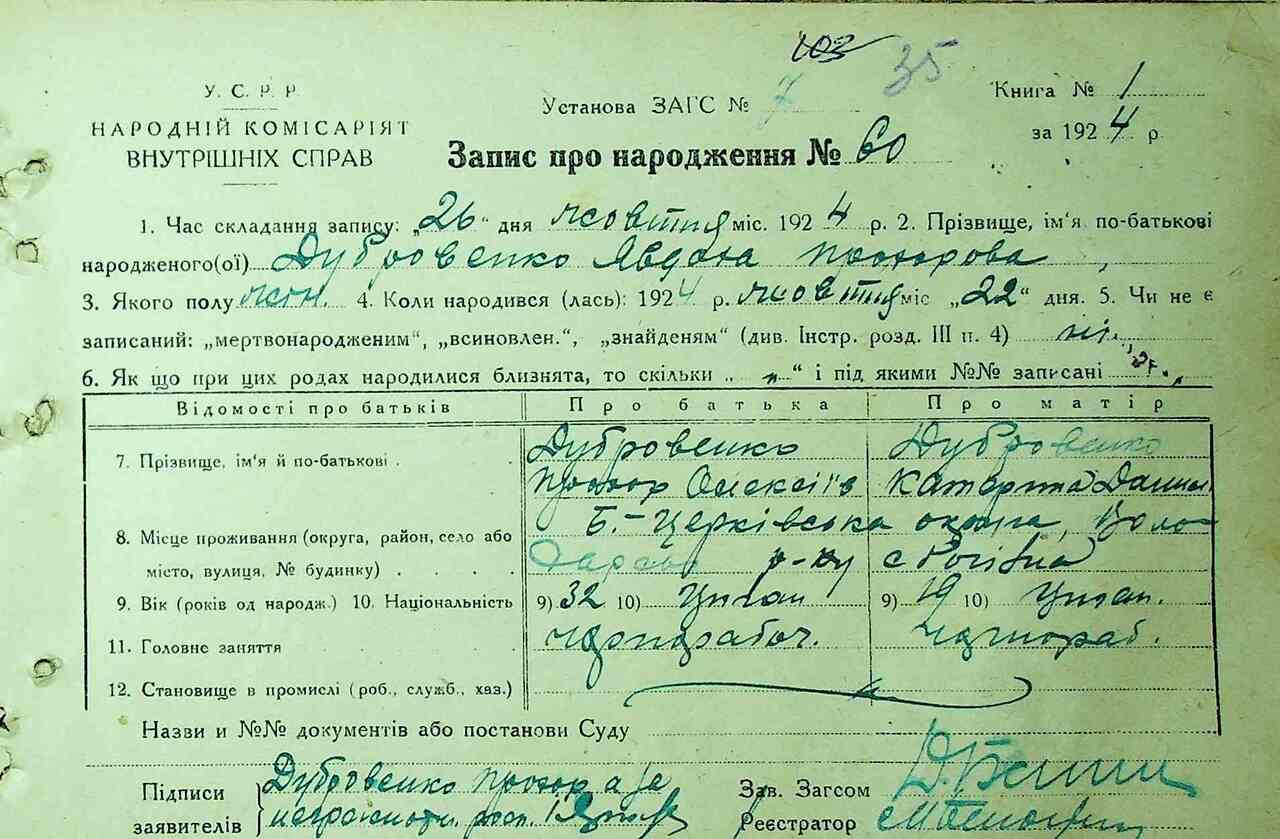 103 35
У. С. Р. Р
НАРОДНІЙ КОМІСАРІЯТ
ВНУТРІШНІХ СПРАВ
Установа ЗАГС № 7
Книга № 1
за 1924 р
Запис про народження № 60
1. Час складання запису: „26" дня жовтня міс. 1924 р. 2. Прізвище, ім'я по-батькові
народженого(ої) Дубровенко Явдоха Прохорова,
3. Якого полу жін. 4. Коли народився (лась): 1924 р. жовтня міс „22" дня. 5. Чи не є
записаний: „мертвонародженим", „всиновлен.", „знайденям" (див. Інстр. розд. III п. 4) ні.
6. Як що при цих родах народилися близнята, то скільки „ „ " і під якими №№ записані
Відомості про батьків Про батька Про матір
7. Прізвище, ім'я й по-батькові . Дубровенко Дубровенко
Прохор Олексіїв Катерина Данил.
8. Місце проживання (округа, район, село або Б.-Церківська округа, Воло-
місто, вулиця, № будинку) . . . . р-ну с
9. Вік (років од народж.) 10. Національність 9) 32 10) Циган 9) 19 10) Циган.
11. Головне заняття чорнорабоч. чорнораб.
12. Становище в промислі (роб., служб., хаз.)
Назви и №№ документів або постанови Суду
Підписи Дубровенко Прохор а за
заявителів неграмотн. росп.
Зав. Загсом
Реєстратор